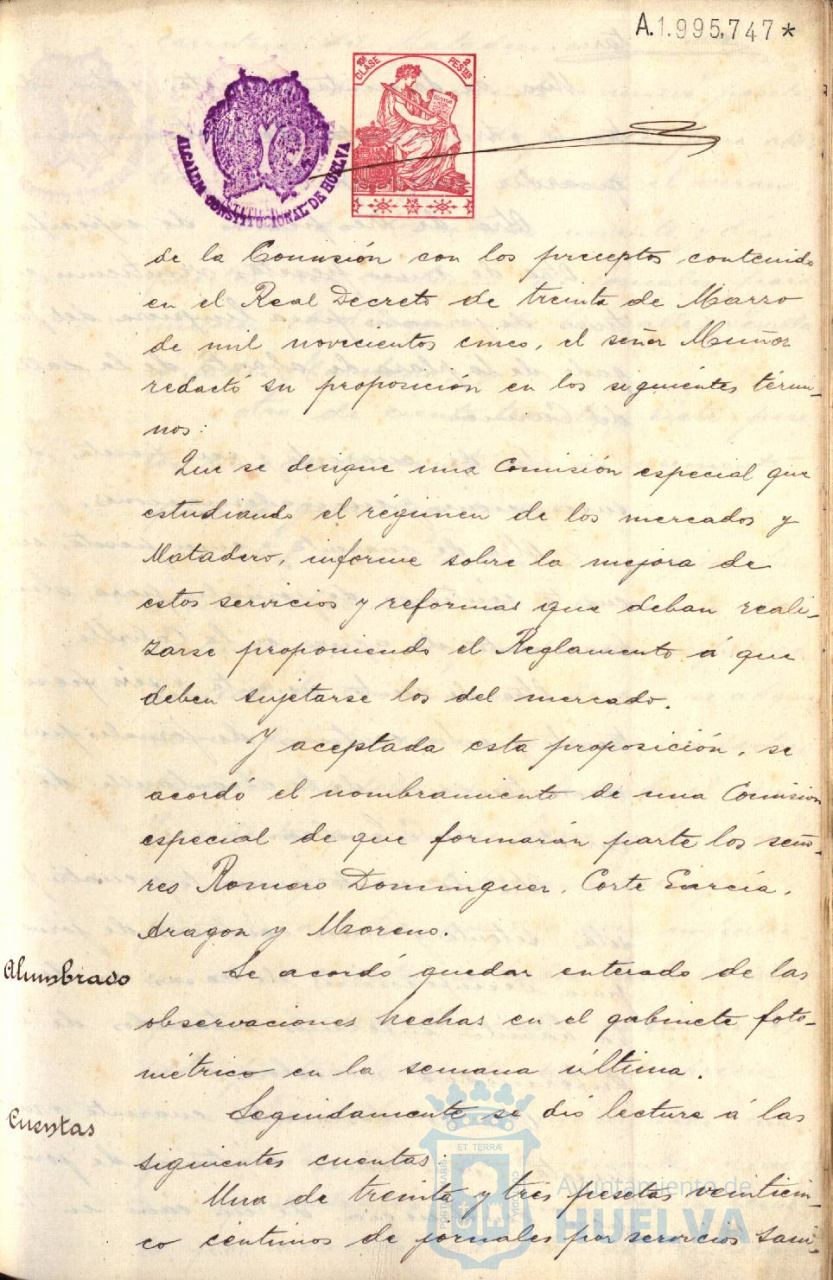 A.1.995.747*
10ª CLASE 2 PESETAS
ALCALDIA CONSTITUCIONAL DE HUELVA
de la Comisión con los preceptos contenido
en el Real Decreto de treinta de Marzo
de mil novecientos cinco, el señor Muñoz
redactó su proposición en los siguientes térmi-
nos:
Que se designe una Comisión especial que
estudiando el régimen de los mercados y
Matadero, informe sobre la mejora de
estos servicios y reformas que deban reali-
zarse proponiendo el Reglamento á que
deben sujetarse los del mercado.
Y aceptada esta proposición, se
acordó el nombramiento de una Comisión
especial de que formarán parte los seño-
res Romero Dominguez, Corte García,
Aragon y Moreno.
Alumbrado
Se acordó quedar enterado de las
observaciones hechas en el gabinete foto-
métrico en la semana última.
Cuentas
Seguidamente se dió lectura á las
siguientes cuentas:
Una de treinta y tres pesetas veinticin-
co céntimos de jornales por servicios sani-
ET TERRÆ
PORTUS MARIS
CUSTODIA
Ayuntamiento de
HUELVA